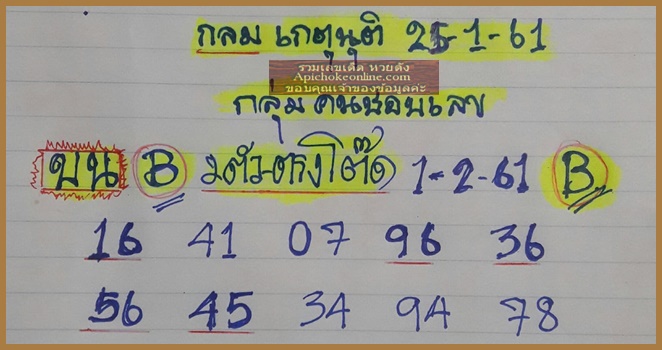 กลม เกตุนุติ 25-1-61
รวมเลขเด็ด หวยดัง
Apichokeonline.com
ขอบคุณเจ้าของข้อมูลค่ะ
กลุ่ม คนชอบเลข
บน B ตรงโต๊ด 1-2-61 B
16 41 07 96 36
56 45 34 94 78